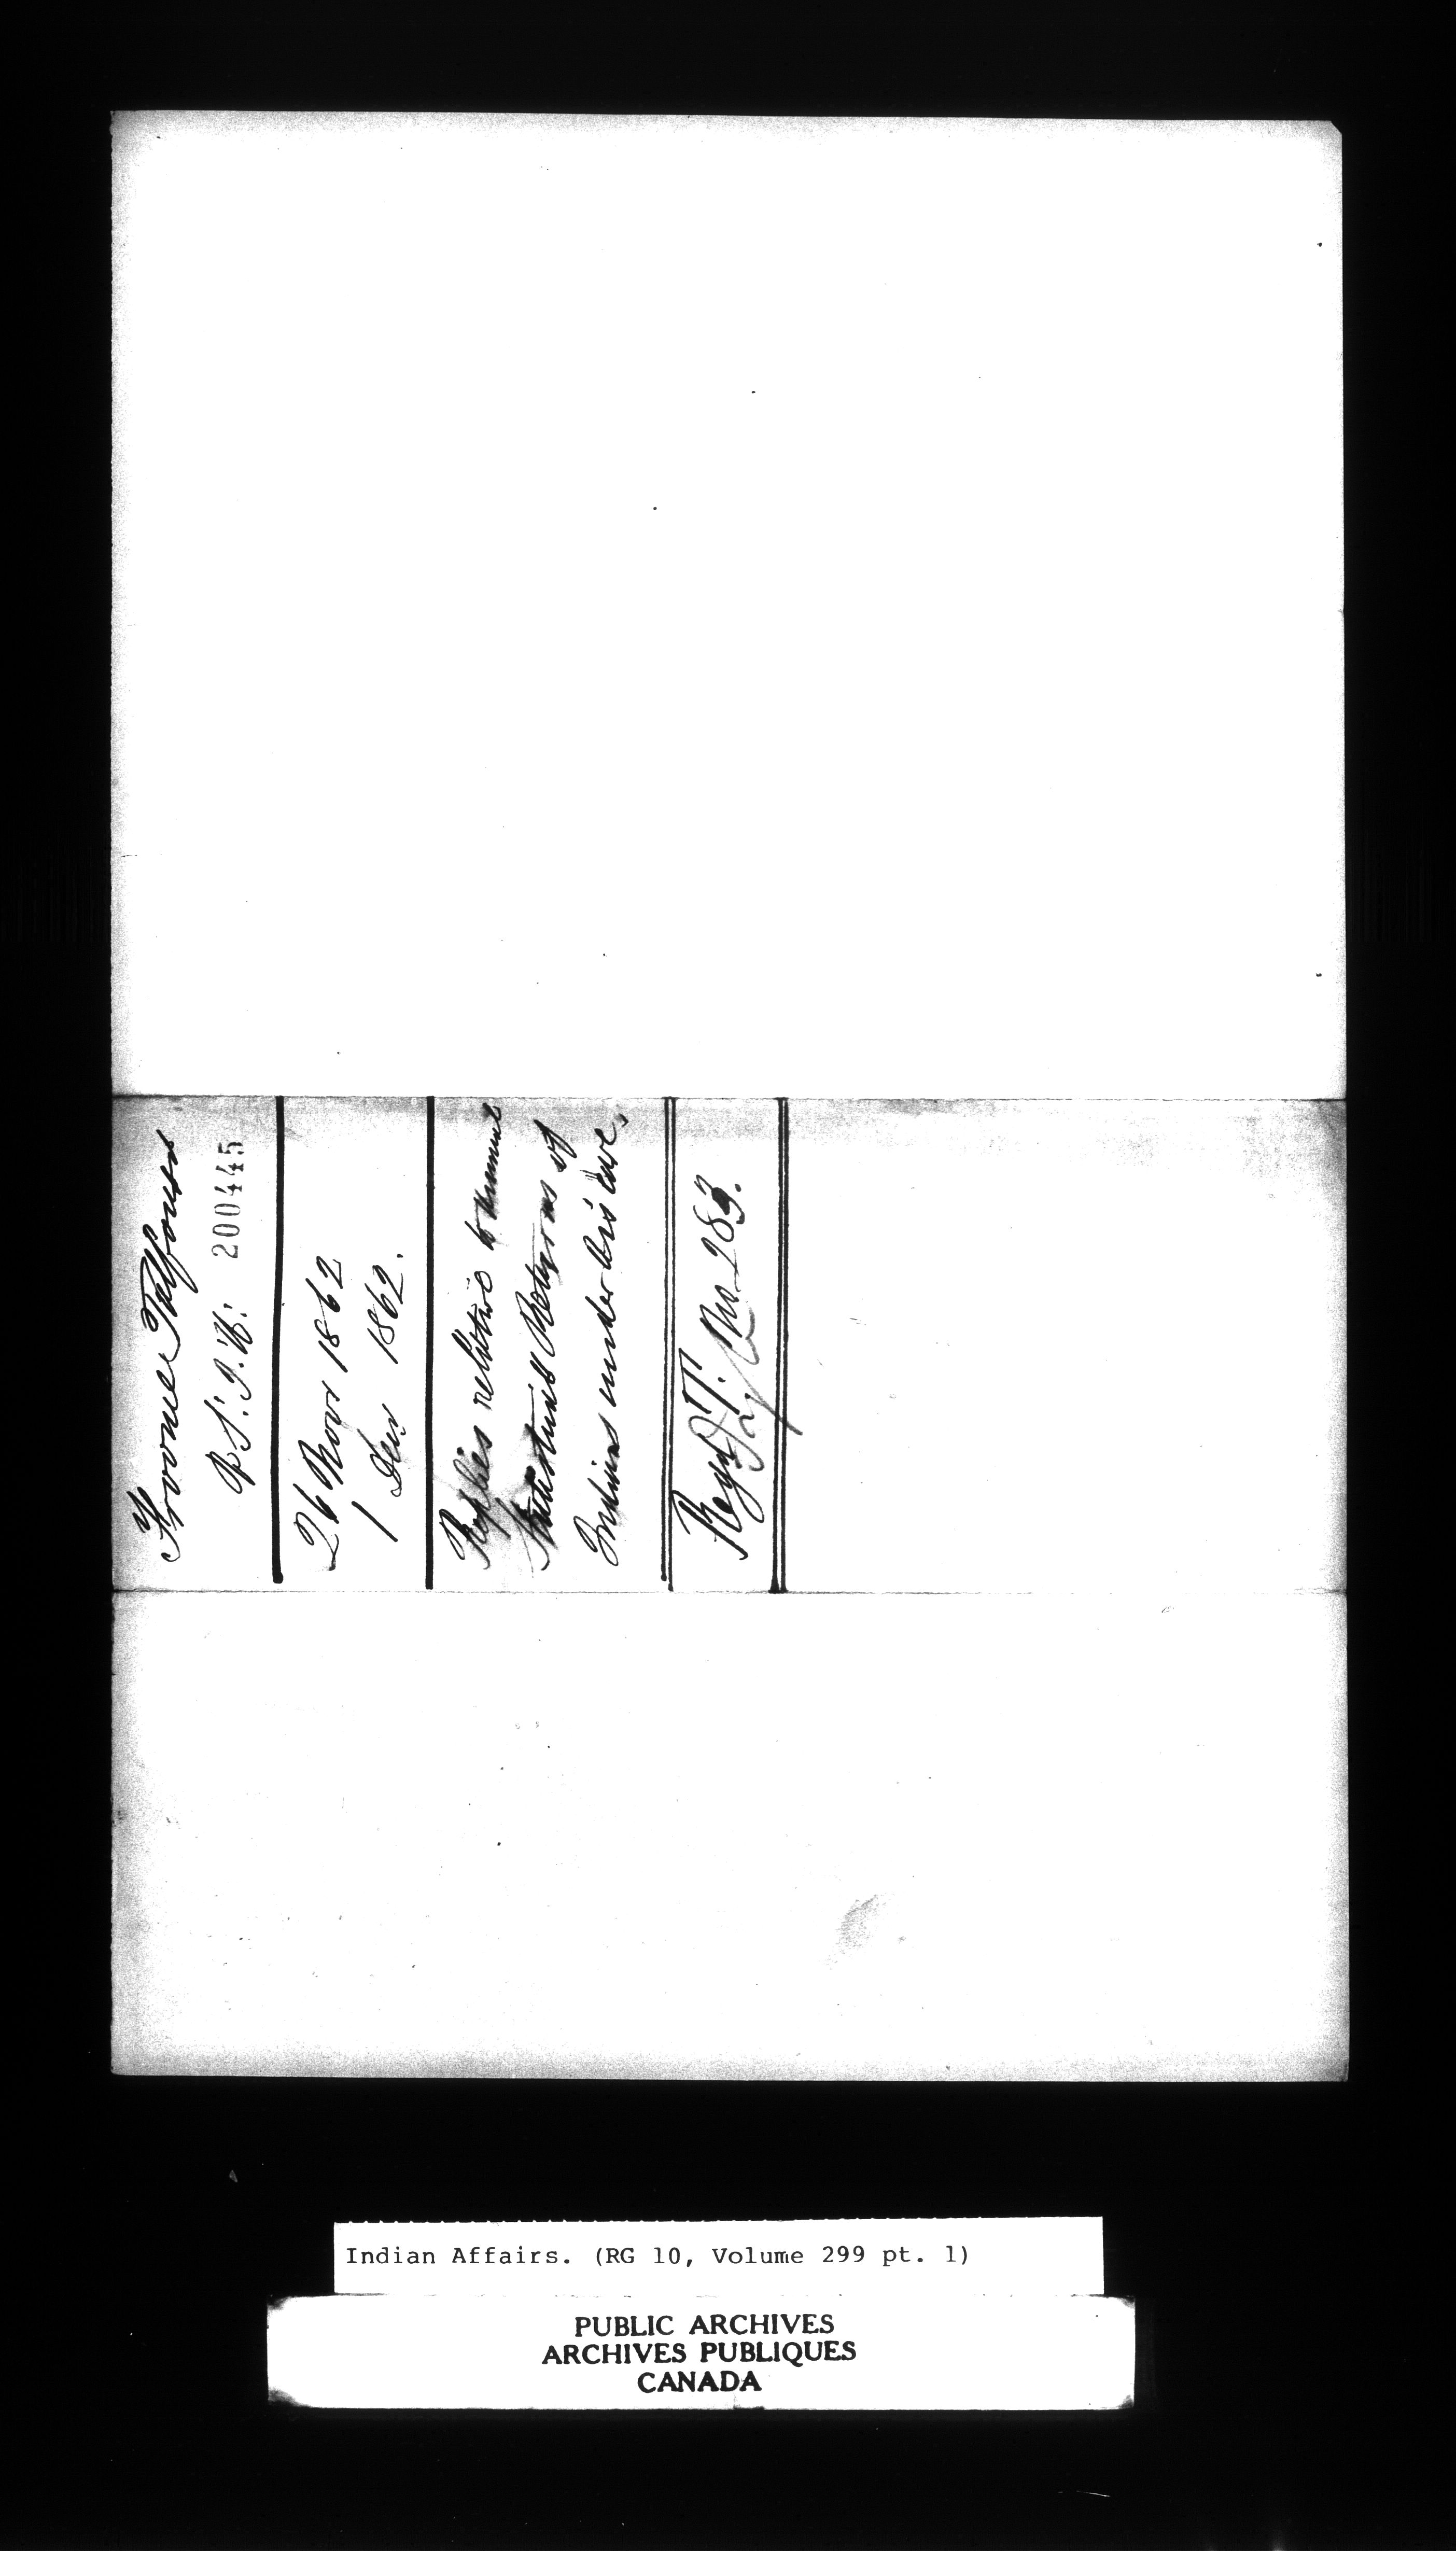 Froome Talfourd
V. S. I. A.
200445
26 Novr 1862
1 Decr 1862.
Replies relative to annual
Statistical Returns of
Indians under his care.
Regd T. No 283.
Indian Affairs. (RG 10, Volume 299 pt. 1)
PUBLIC ARCHIVES
ARCHIVES PUBLIQUES
CANADA